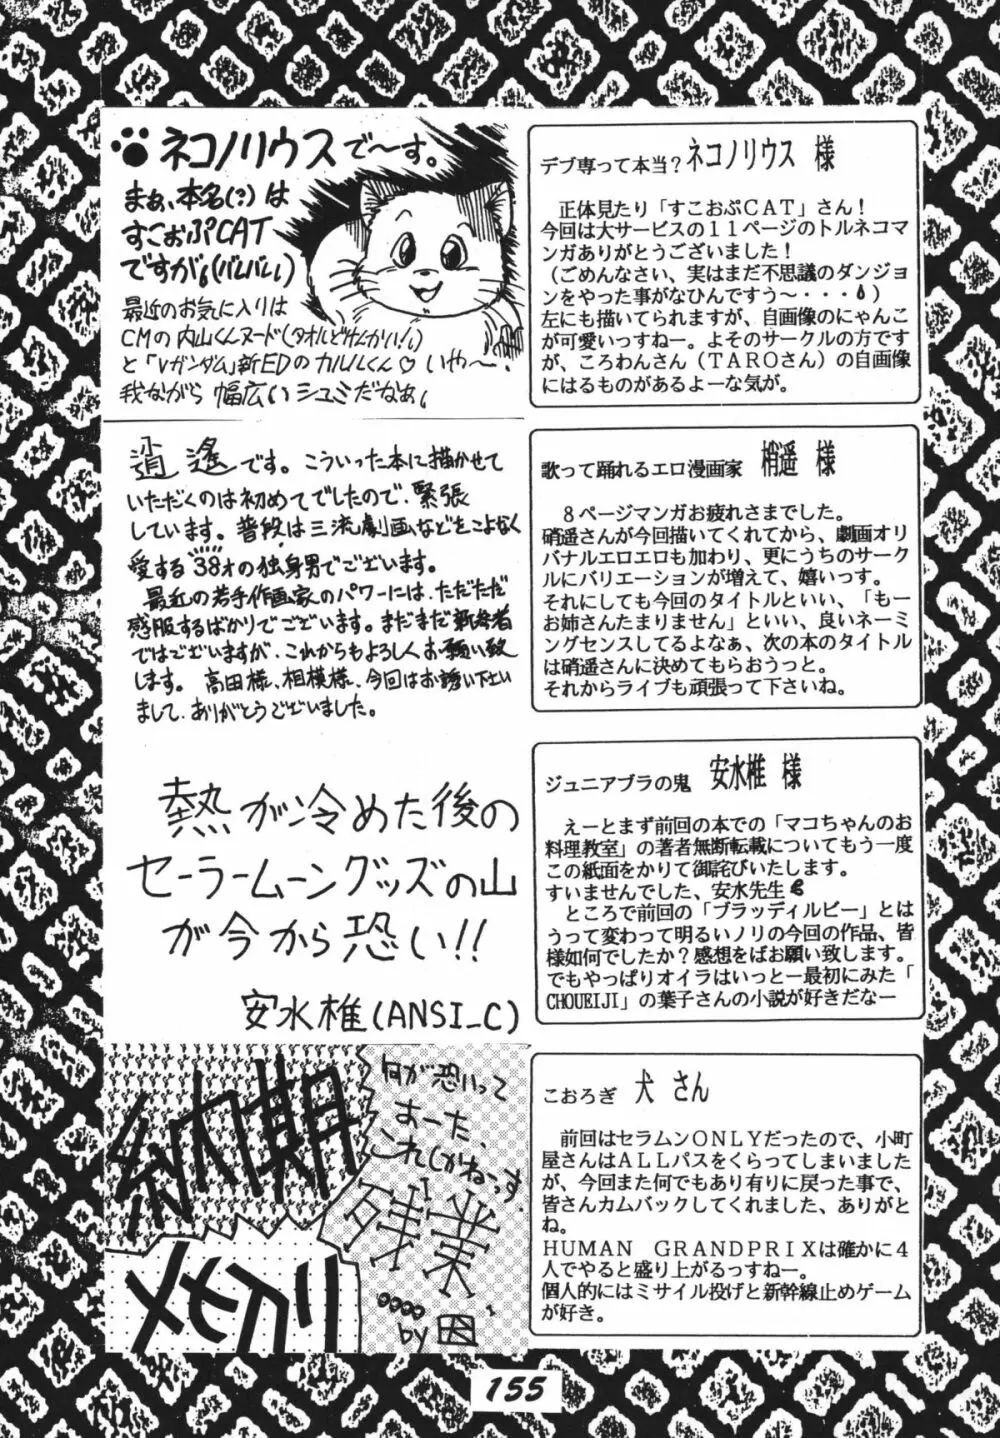 ネコノリウスで〜す。
まぁ、本名(?)は
すこおぷCAT
ですが。(バレバレ)
最近のお気に入りは
CMの内山くんヌード(タオルどけんかい!)
と「Vガンダム」新EDのカルルくん♡いや〜!
我ながら幅広いシュミだなぁ。
デブ専って本当? ネコノリウス 様
正体見たり「すこおぷCAT」さん!
今回は大サービスの11ページのトルネコマ
ンガありがとうございました!
(ごめんなさい、実はまだ不思議のダンジョ
ンをやった事がなひんですう〜・・・)
左にも描いてられますが、自画像のにゃんこ
が可愛いっすねー。よそのサークルの方です
が、ころわんさん(TAROさん)の自画像
にはるものがあるよーな気が。
逍遙です。こういった本に描かせて
いただくのは初めてでしたので、緊張
しています。普段は三流劇画などをこよなく
愛する38才の独身男でございます。
最近の若手作画家のパワーには、ただただ
感服するばかりでございます。まだまだ新参者
ではございますが、これからもよろしくお願い致
します。高田様、相模様、今回はお誘い下さい
まして、ありがとうございました。
歌って踊れるエロ漫画家 梢遥 様
8ページマンガお疲れさまでした。
硝遥さんが今回描いてくれてから、劇画オリ
バナルエロエロも加わり、更にうちのサーク
ルにバリエーションが増えて、嬉いっす。
それにしても今回のタイトルといい、「もー
お姉さんたまりません」といい、良いネーミ
ングセンスしてるよなぁ、次の本のタイトル
は硝遥さんに決めてもらおうっと。
それからライブも頑張って下さいね。
熱が冷めた後の
セーラームーングッズの山
が今から恐い!!
安水椎(ANSI_C)
ジュニアブラの鬼 安水椎 様
えーとまず前回の本での「マコちゃんのお
料理教室」の著者無断転載についてもう一度
この紙面をかりて御詫びいたします。
すいませんでした、安水先生
ところで前回の「ブラッディルビー」とは
うって変わって明るいノリの今回の作品、皆
様如何でしたか?感想をばお願い致します。
でもやっぱりオイラはいっとー最初にみた「
CHOUEIJI」の葉子さんの小説が好きだなー
何が恐いって
おーた、
これしかねーっす
納期
残業
メキリ
by 困
こおろぎ 犬 さん
前回はセラムンONLYだったので、小町
屋さんはALLパスをくらってしまいました
が、今回また何でもあり有りに戻った事で、
皆さんカムバックしてくれました、ありがと
ね。
HUMAN GRANDPRIXは確かに4
人でやると盛り上がるっすねー。
個人的にはミサイル投げと新幹線止めゲーム
が好き。
155